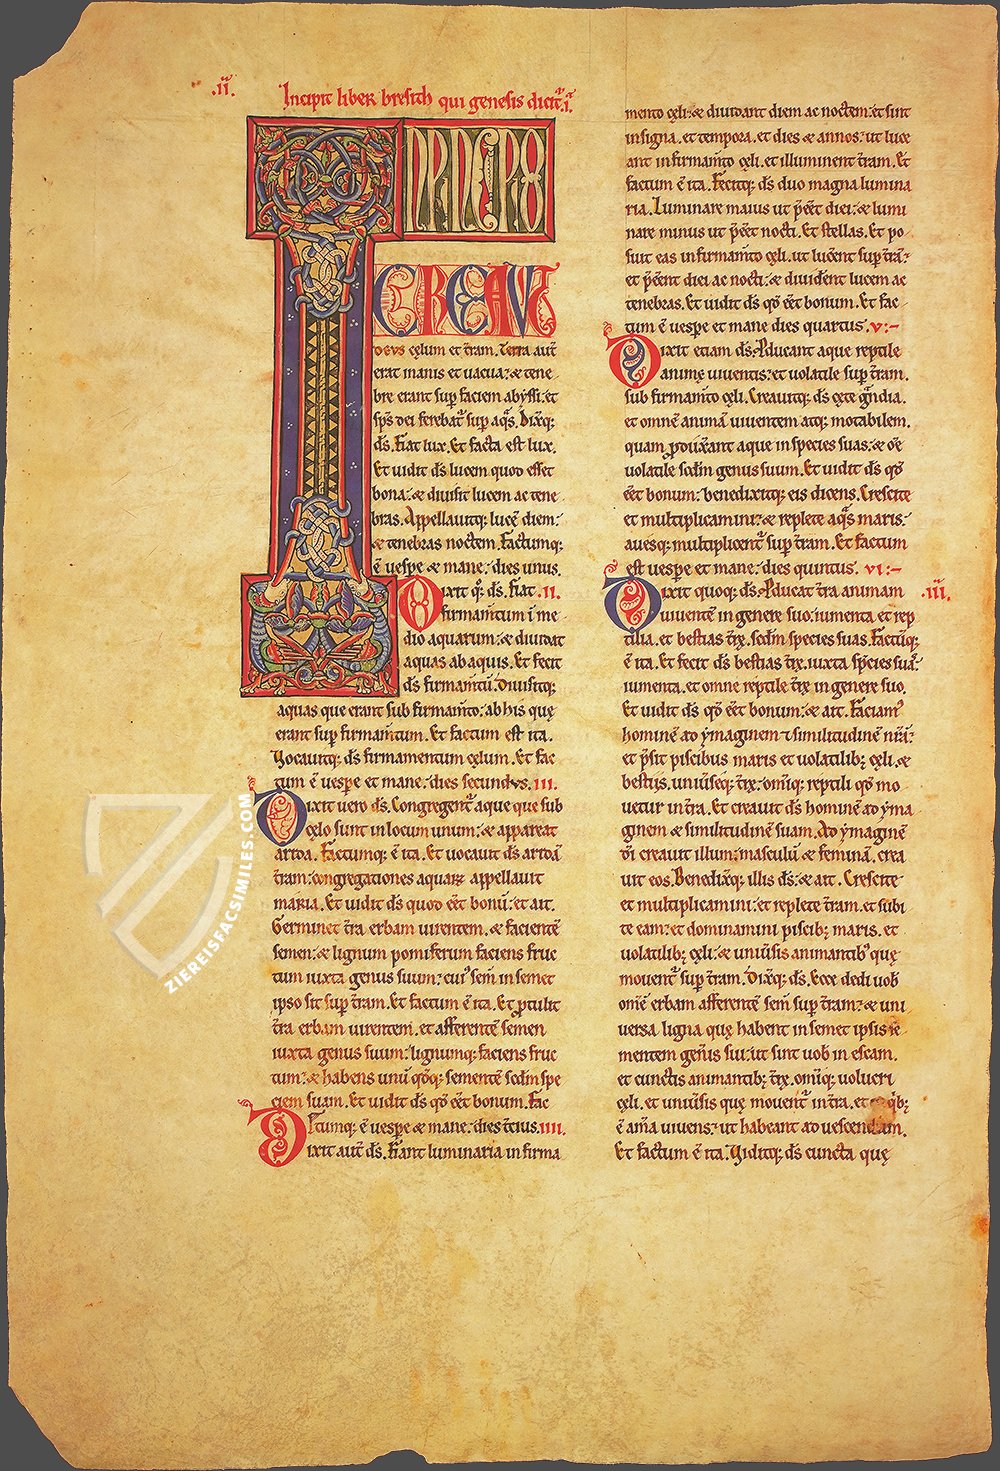 .II.
Incipit liber bresith qui genesis dicit̃.
IN PRINCIPIO
CREAVIT
deus cęlum et tr̃am. Terra aut̃
erat inanis et vacua: & tene
bre erant sup̃ faciem abyssi: et
sps̃ dei ferebat̃ sup̃ aq̃s. Dixq;
ds̃. Fiat lux. Et facta est lux.
Et vidit ds̃ lucem quod esset
bona: & divisit lucem ac tene
bras. Appellavitq; lucẽ diem:
& tenebras noctem. Factumq;
ẽ vesp̃e & mane: dies unus.
Dixit q̊; ds̃. Fiat .II.
firmam̃tum ĩ me
dio aquarum: & dividat
aquas ab aquis. Et fecit
ds̃ firmam̃tũ. Divisitq;
aquas que erant sub firmam̃to: ab his quę
erant sup̃ firmam̃tum. Et factum est ita.
Vocavitq; ds̃ firmamentum cęlum. Et fac
tum ẽ vesp̃e et mane: dies secundus. III.
Dixit vero ds̃. Congregent̃ aque que sub
cęlo sunt in locum unum: & appareat
arida. Factumq; ẽ ita. Et vocavit ds̃ aridã
tr̃am: congregationes aquarꝝ appellavit
maria. Et vidit ds̃ quod eẽt bonũ: et ait.
Germinet tr̃a erbam virentem. & facientẽ
semen: & lignum pomiferum faciens fruc
tum iuxta genus suum: cui᾽ sem̃ in semet
ipso sit sup̃ tr̃am. Et factum ẽ ita. Et ꝓtulit
tr̃a erbam virentem. et afferentẽ semen
iuxta genus suum: lignumq; faciens fruc
tum: & habens unũ q̊dq; sementẽ scd̃m spe
ciem suam. Et vidit ds̃ qd̊ eẽt bonum. Fac
tumq; ẽ vesp̃e & mane: dies tr̃cius. IIII.
Dixit aut̃ ds̃. Fiant luminaria in firma
mento cęli: & dividant diem ac noctem: et sint
in signa. et tempora. et dies & annos: ut luce
ant in firmam̃to cęli. et illuminent tr̃am. Et
factum ẽ ita. Fecitq; ds̃ duo magna lumina
ria. Luminare maius ut p̃eẽt diei: & lumi
nare minus ut p̃eẽt nocti. Et stellas. Et po
suit eas in firmam̃to cęli. ut lucer̃nt sup̃ tr̃ã:
et p̃eẽnt diei ac nocti: & divider̃nt lucem ac
tenebras. Et vidit ds̃ qd̊ eẽt bonum. Et fac
tum ẽ vesp̃e et mane dies quartus. V:~
Dixit etiam ds̃. Ꝓducant aque reptile
animę viventis: et volatile sup̃ tr̃am.
sub firmam̃to cęli. Creavitq; ds̃ cęte gr̃ndia.
et omnẽ animã viventem atq; motabilem.
quam ꝓduxer̃ant aque in species suas: & om̃e
volatile scd̃m genus suum. Et vidit ds̃ qd̊
eẽt bonum: benedixitq; eis dicens. Crescite
et multiplicamini: & replete aq̃s maris:
avesq; multiplicent̃ sup̃ tr̃am. Et factum
est vesp̃e et mane: dies quintus. VI:~
Dixit quoq; ds̃. Ꝓducat tr̃a animam .III.
viventẽ in genere suo. iumenta et rep
tilia. et bestias tr̃ę. scd̃m species suas. Factũq;
ẽ ita. Et fecit ds̃ bestias tr̃ę. iuxta sp̃cies suas.
iumenta. et omne reptile tr̃ę in genere suo.
Et vidit ds̃ qd̊ eẽt bonum: & ait. Faciam᾽
hominẽ ad ymaginem ⁊ similitudinẽ nr̃ãm:
et p̃sit piscibus maris et volatilib; cęli. &
bestijs. uniṽseq; tr̃ę: om̃iq; reptili qd̊ mo
vetur in tr̃a. Et creavit ds̃ hominẽ ad yma
ginem & similitudinẽ suam. Ad ymaginẽ
dĩ creavit illum: masculũ & feminã. crea
vit eos. Benedixq; illis ds̃: & ait. Crescite
et multiplicamini: et replete tr̃am. et subi
te eam: et dominamini piscib; maris. et
volatilib; cęli: & uniṽsis animantib᾽ quę
movent̃ sup̃ tr̃am. Dixq; ds̃. Ecce dedi vob̃
om̃ẽ erbam afferentẽ sem̃ sup̃ tr̃am: & uni
versa ligna quę habent in semet ipsis se
mentem gen̄is sui: ut sint vob̃ in escam.
et cunctis animantib; tr̃ę. om̃iq; volucri
cęli. et uniṽsis quę movent̃ in tr̃a. et q̃b;
ẽ anĩa vivens: ut habeant ad vescendam.
Et factum ẽ ita. Viditq; ds̃ cuncta quę
ZIEREISFACSIMILES.COM